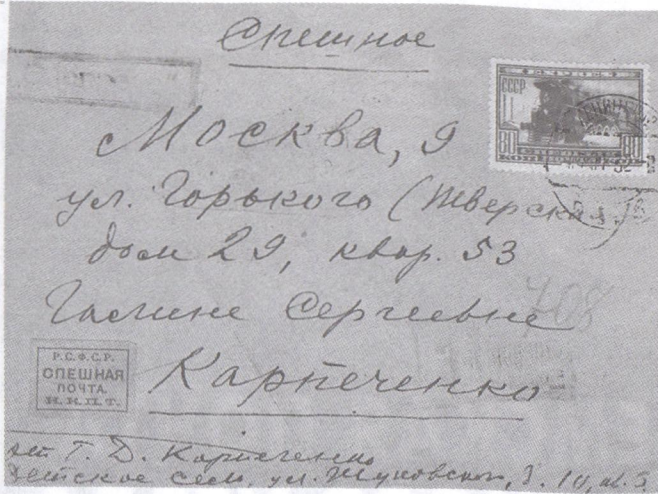 Спешное
СССР
80 80
Москва, 9
ул. Горького (Тверская
дом 29, квар. 53
Галине Сергеевне
708
Карпеченко
Р.С.Ф.С.Р.
СПЕШНАЯ
ПОЧТА.
Н.К.П.Т.
от Г. Д. Карпеченко
Детское Село, ул. Жуковского, д. 10, кв. 3